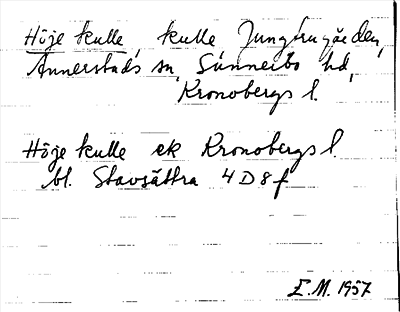 Höje kulle, kulle Jungfrugården,
Annerstads sn, Sunnerbo hd,
Kronobergs l.
Höje kulle ek Kronobergs l.
bl. Stavsättra 4D8f
E.M. 1957